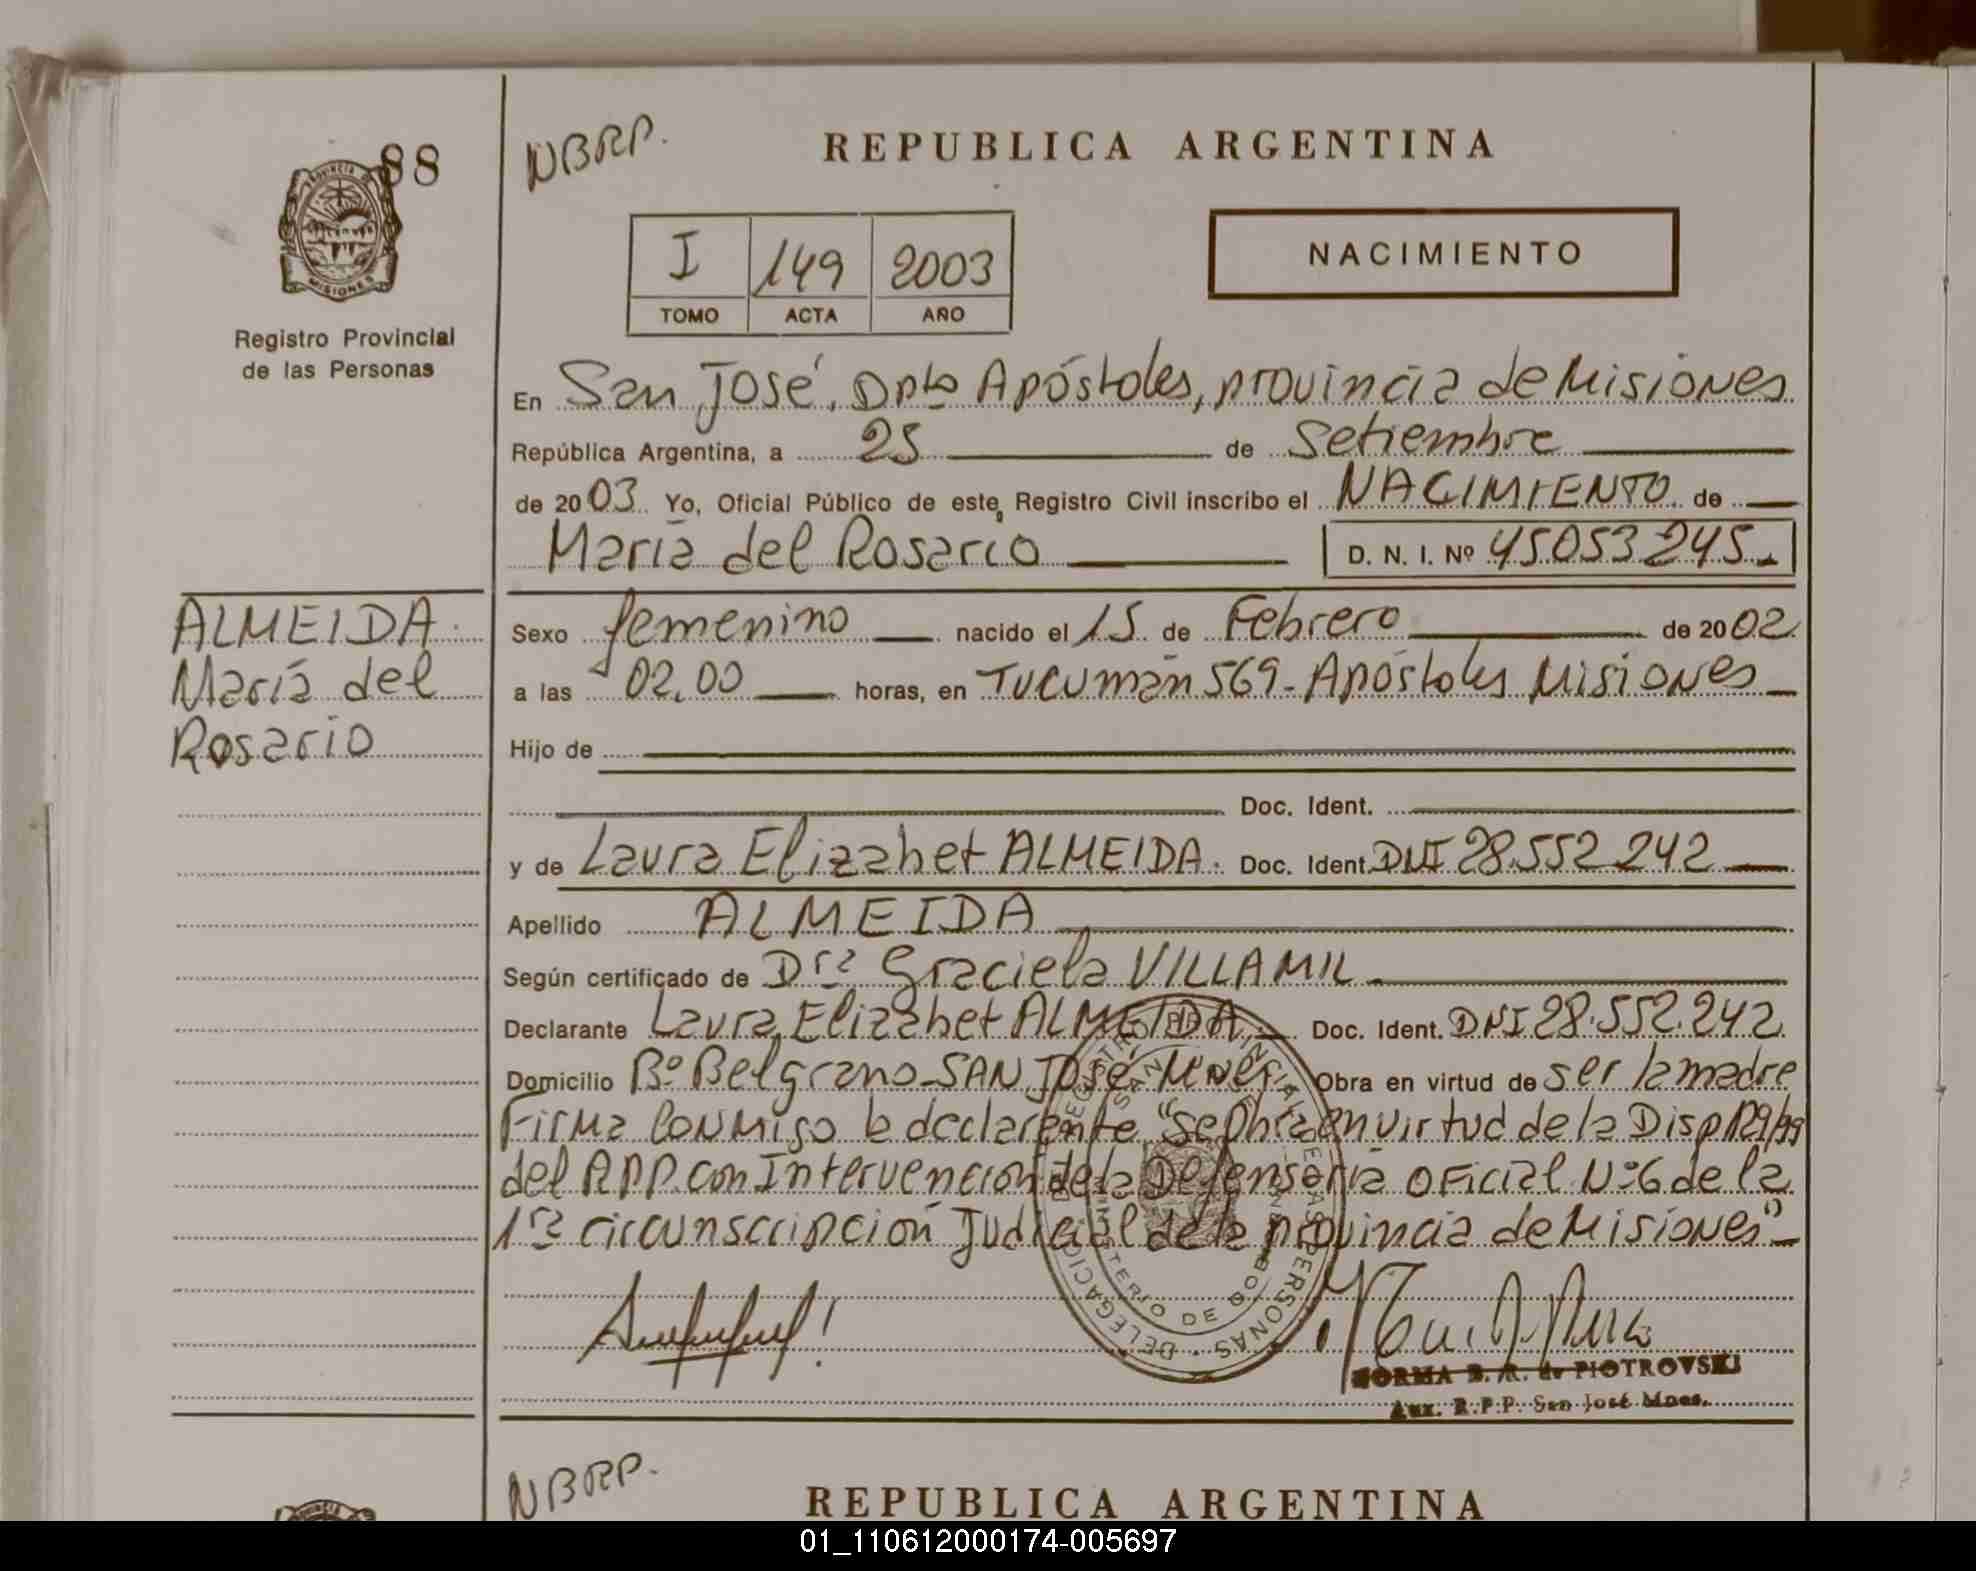 88
NBRP.
REPUBLICA ARGENTINA
PROVINCIA DE
MISIONES
I 149 2003
TOMO ACTA AÑO
NACIMIENTO
Registro Provincial
de las Personas
En San José, Dpto Apóstoles, provincia de Misiones
República Argentina, a 25 de Setiembre
de 2003 Yo, Oficial Público de este Registro Civil inscribo el NACIMIENTO de
María del Rosario D. N. I. Nº 45053245
ALMEIDA
María del
Rosario
Sexo femenino nacido el 15 de Febrero de 2002
a las 02,00 horas, en Tucumán 569 - Apóstoles Misiones
Hijo de
Doc. Ident.
y de Laura Elizabet ALMEIDA. Doc. Ident. DNI 28.552 242
Apellido ALMEIDA
Según certificado de Dra Graciela VILLAMIL
Declarante Laura Elizabet ALMEIDA Doc. Ident. DNI 28.552.242
Domicilio Bº Belgrano - SAN José Mnes Obra en virtud de ser la madre
Firma conmigo la declarante, "Se labra en virtud de la Disp 129/99
del RPP. con Intervención de la Defensoría Oficial Nº 6 de la
1ra circunscripción Judicial de la provincia de Misiones"
DELEGACION
MINISTERIO DE GOB
NORMA B. R. de PIOTROVSKI
Aux. R.P.P. San José Mnes.
NBRP.
REPUBLICA ARGENTINA
01_110612000174-005697